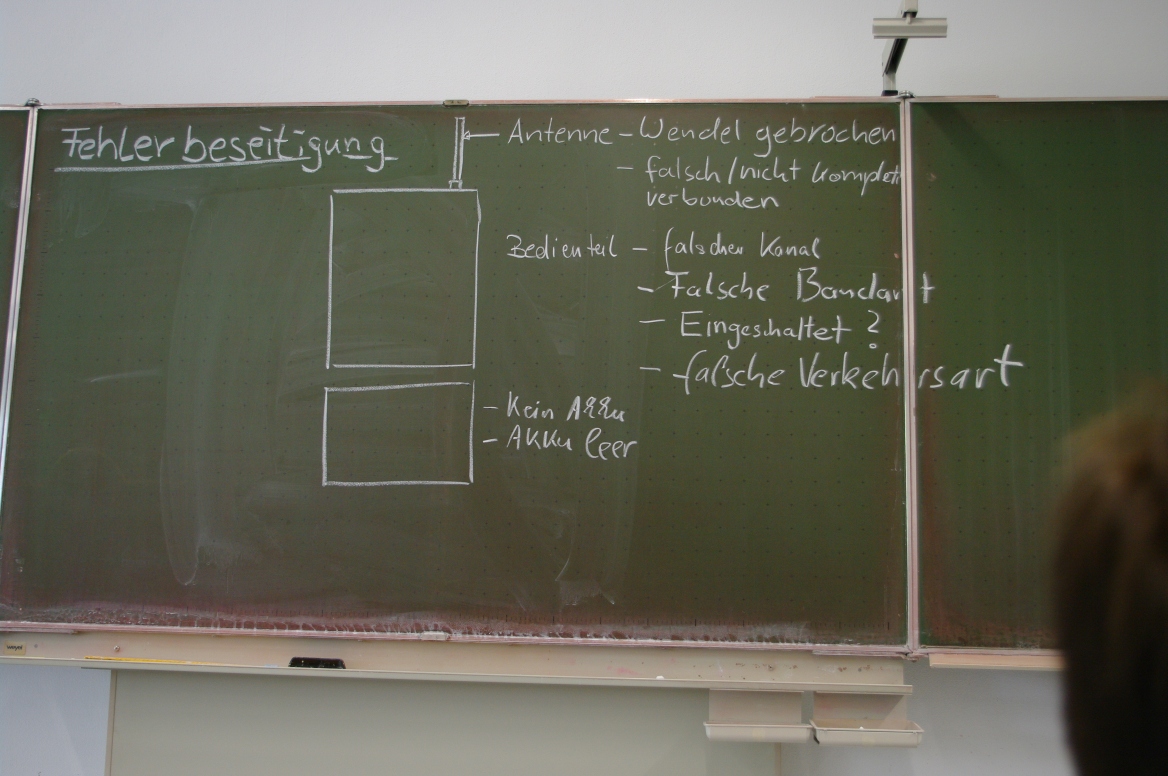 Fehlerbeseitigung
Antenne - Wendel gebrochen
- falsch/nicht komplett
verbunden
Bedienteil - falscher Kanal
- Falsche Bandart
- Eingeschaltet ?
- falsche Verkehrsart
- Kein Akku
- Akku leer